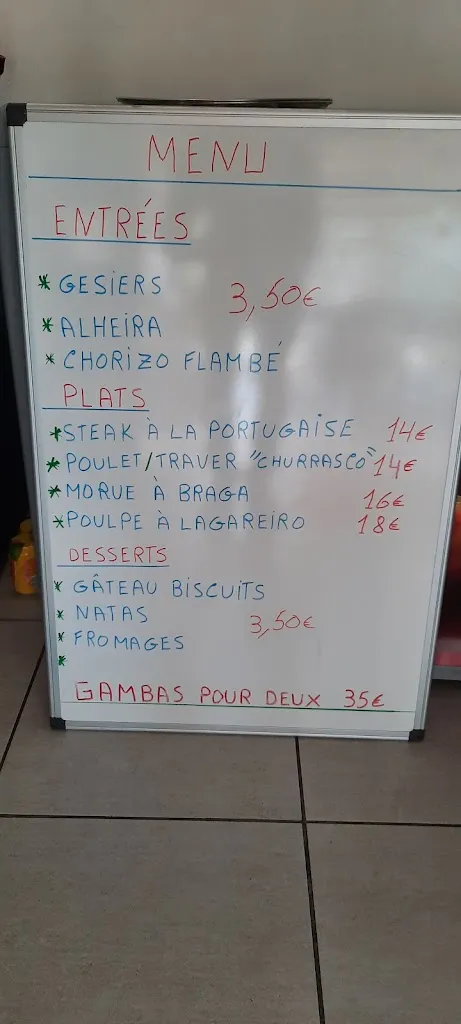 MENU
ENTRÉES
* GESIERS
3,50€
* ALHEIRA
* CHORIZO FLAMBÉ
PLATS
* STEAK À LA PORTUGAISE 14€
* POULET/TRAVER "CHURRASCO" 14€
* MORUE À BRAGA 16€
* POULPE À LAGAREIRO 18€
DESSERTS
* GÂTEAU BISCUITS
* NATAS 3,50€
* FROMAGES
*
GAMBAS POUR DEUX 35€